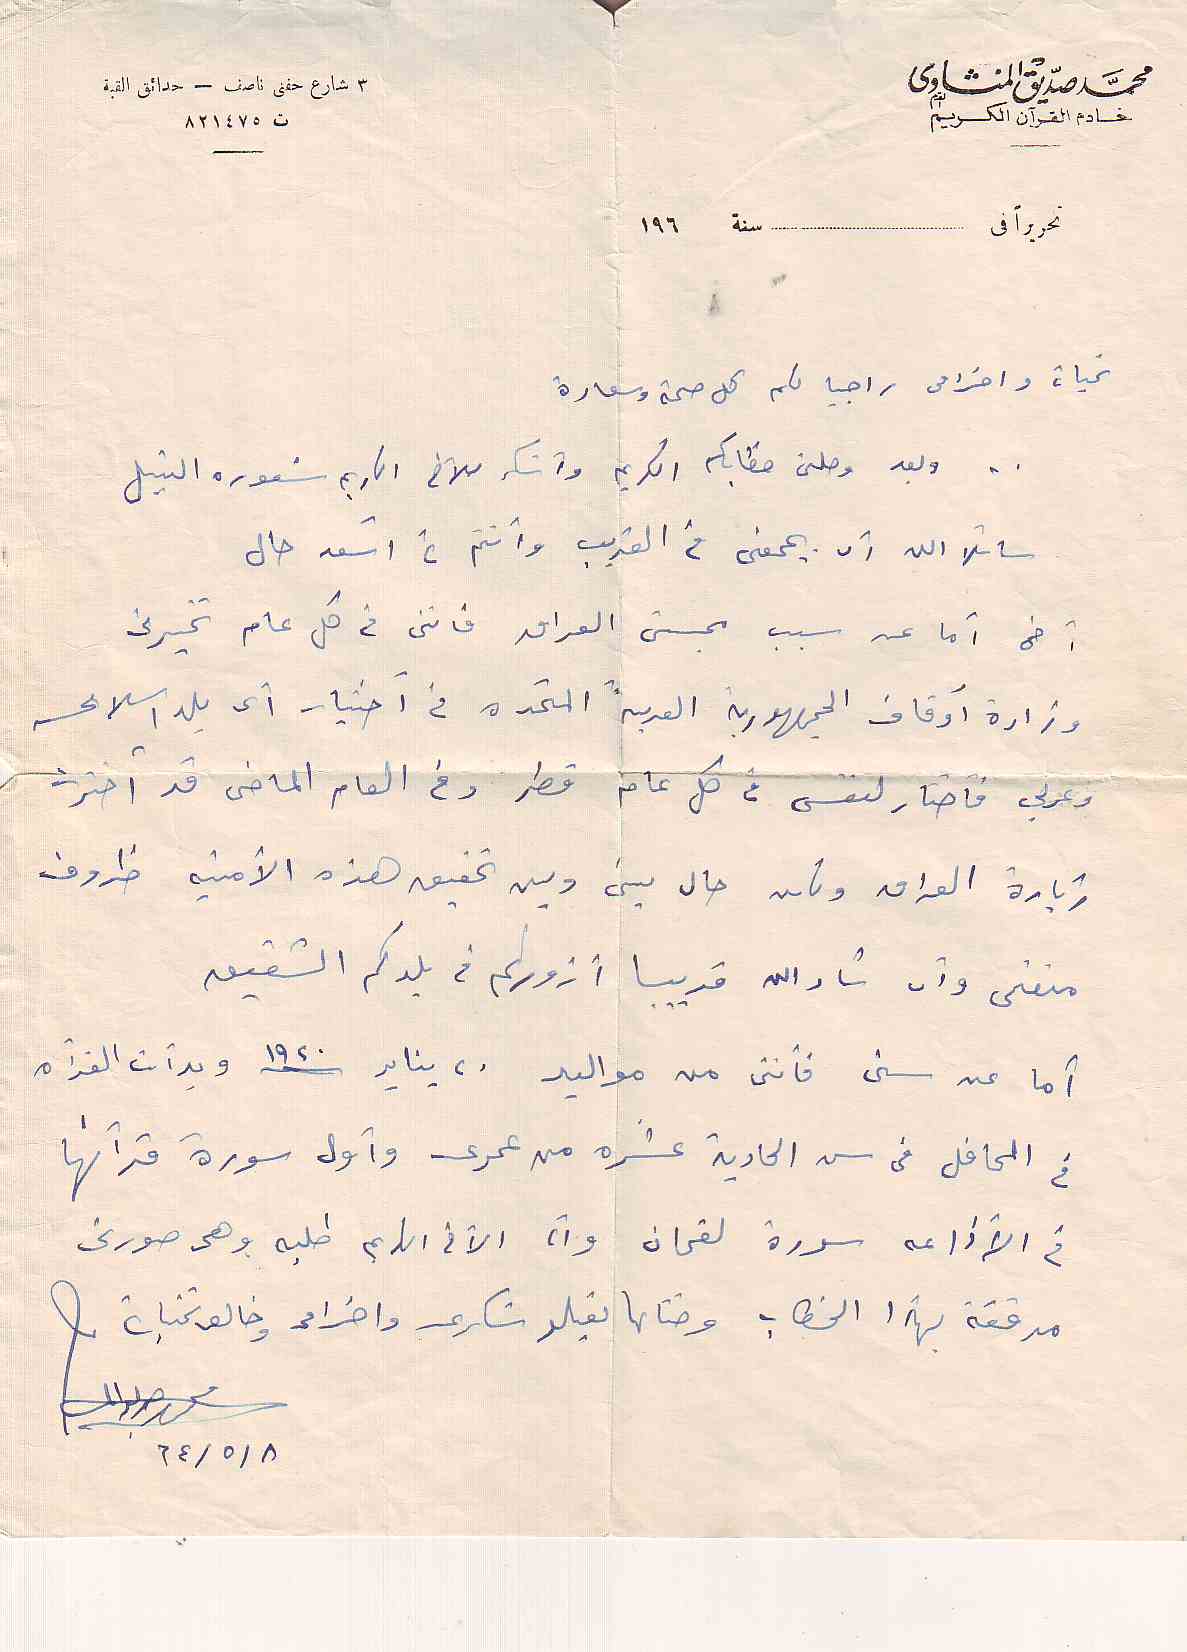 محمد صديق المنشاوى
خادم القرآن الكريم
٣ شارع حفنى ناصف — حدائق القبة
ت ٨٢١٤٧٥
تحريراً فى ............ سنة ١٩٦
تحياتى واحترامى راجيا لكم كل صحة وسعادة
.. وبعد وصلنى خطابكم الكريم وأشكر للأخ الكريم شعوره النبيل
سائلا الله أن يجمعنى فى القريب وأنتم فى أسعد حال
أخى أما عن سبب العراق فاننى فى كل عام تخيرنى
وزارة أوقاف الجمهورية العربية المتحده فى أختيار أى بلد اسلامى
وعربى فأختار لنفسى فى كل عام قطر وفى العام الماضى قد أخترت
زيارة العراق ولكن حال بينى وبين تحقيق هذه الأمنيه ظروف
منعتنى وأن شاء الله قريبا أزوركم فى بلدكم الشقيق
أما عن سنى فأننى من مواليد ٢٠ يناير ١٩٢٠ وبدأت القرآه
فى المحافل فى سن الحادية عشره من عمرى وأول سورة قرأتها
فى الأذاعه سورة لقمان الأخ الكريم طلبه وهى صورتى
مرفقة بهذا الخطاب وختاما تقبلو شكرى واحترامى وخالص تحياتى
٦٤/٥/٨